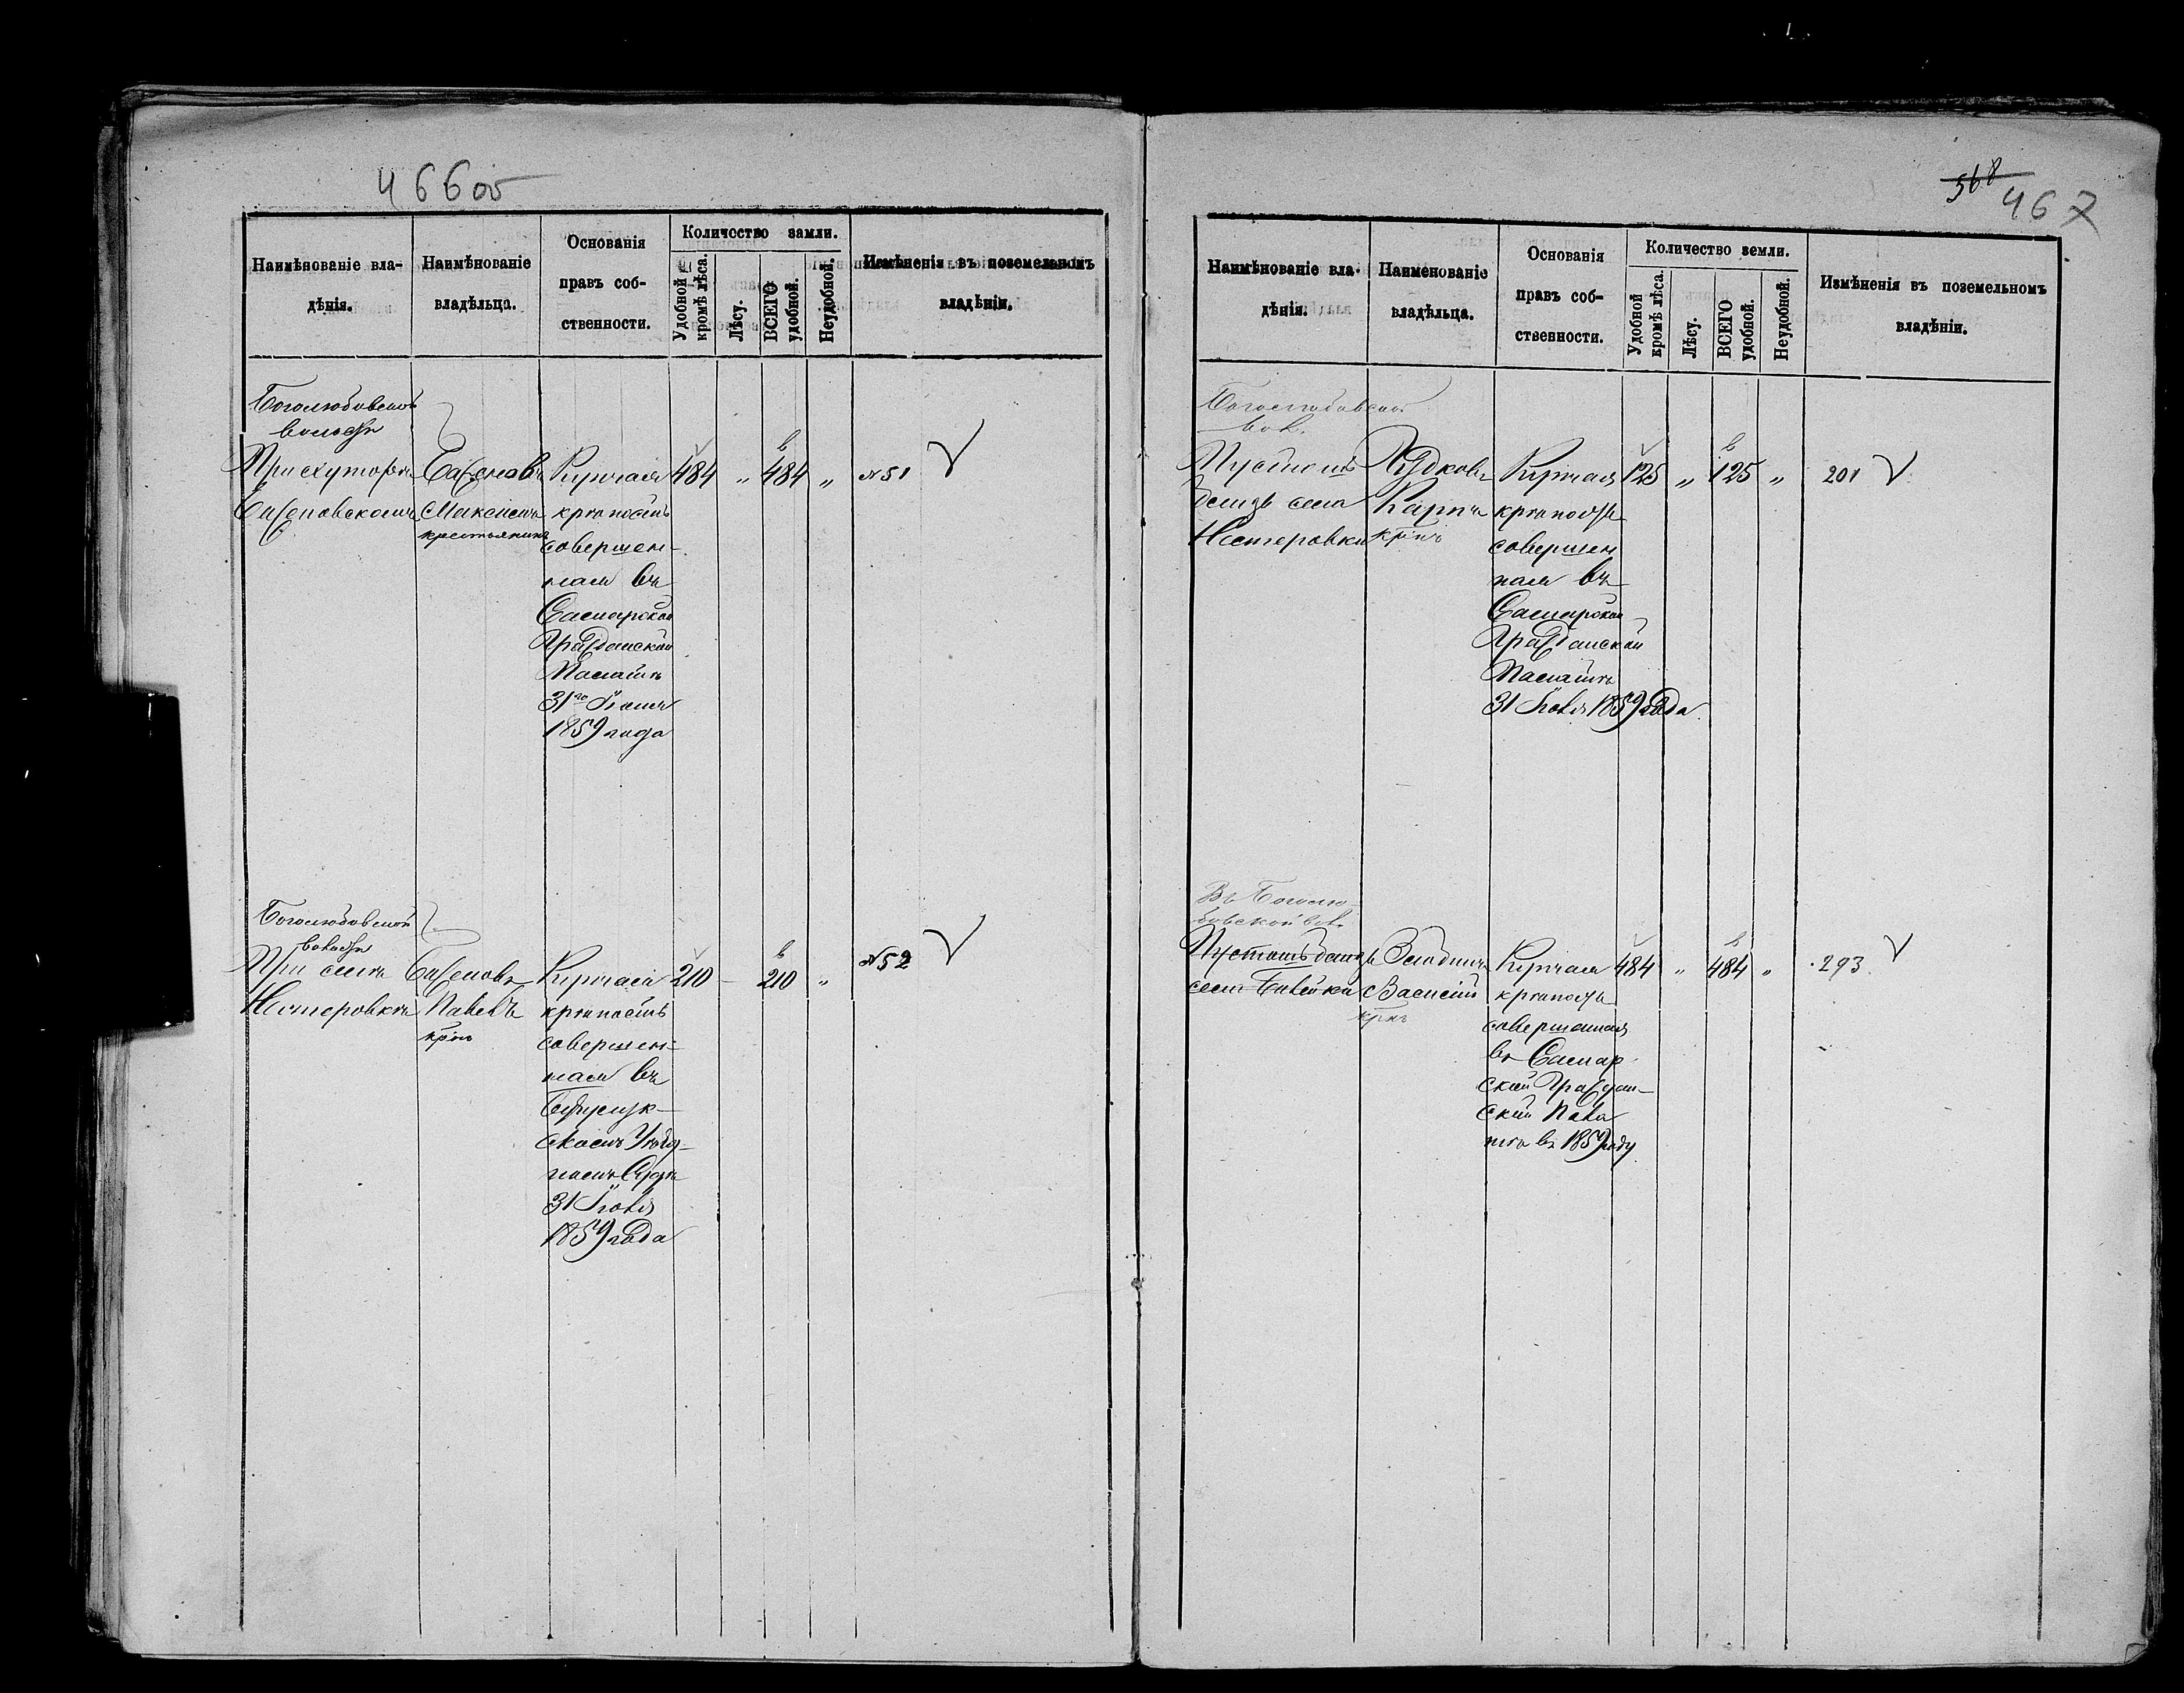 466об
Наимѣнованіе вла-
дѣнія.
Наимѣнованіе
владѣльца.
Основанія
правъ соб-
ственности.
Количество земли.
Удобной
кромѣ лѣса.
Лѣсу.
ВСЕГО
удобной.
Неудобной.
Измѣненія въ поземельномъ
владѣніи.
Боголюбовской
волости
При хуторѣ
Максимъ
крестьянинъ
Купчая
крѣпость
совершен-
ная въ
Самарской
Гражданской
Палатѣ
31го Іюля
1859 года
484 „ 484 „ №51
Боголюбовской
волости
При селѣ
Нестеровкѣ
Павелъ
крнъ
Купчая
крѣпость
совершен-
ная въ
Уѣзд-
номъ Судѣ
31 Іюля
1859 года
210 – 210 „ №52
568
467
Наимѣнованіе вла-
дѣнія.
Наименованіе
владѣльца.
Основанія
правъ соб-
ственности.
Количество земли.
Удобной
кромѣ лѣса.
Лѣсу.
ВСЕГО
удобной.
Неудобной.
Измѣненія въ поземельномъ
владѣніи.
Боголюбовской
вол.
Пустошь
близь села
Нестеровки
Карпъ
крнъ
Купчая
крѣпость
совершен
ная въ
Самарской
Гражданской
Палатѣ
31 Іюля 1859 года.
125 „ 125 „ 201
Въ Боголю-
бовской вол.
Пустошь близь
села
Василій
крнъ
Купчая
крѣпость
совершенная
въ Самар-
ской Граждан-
ской Пала
тѣ въ 1859 году
484 „ 484 „ 293